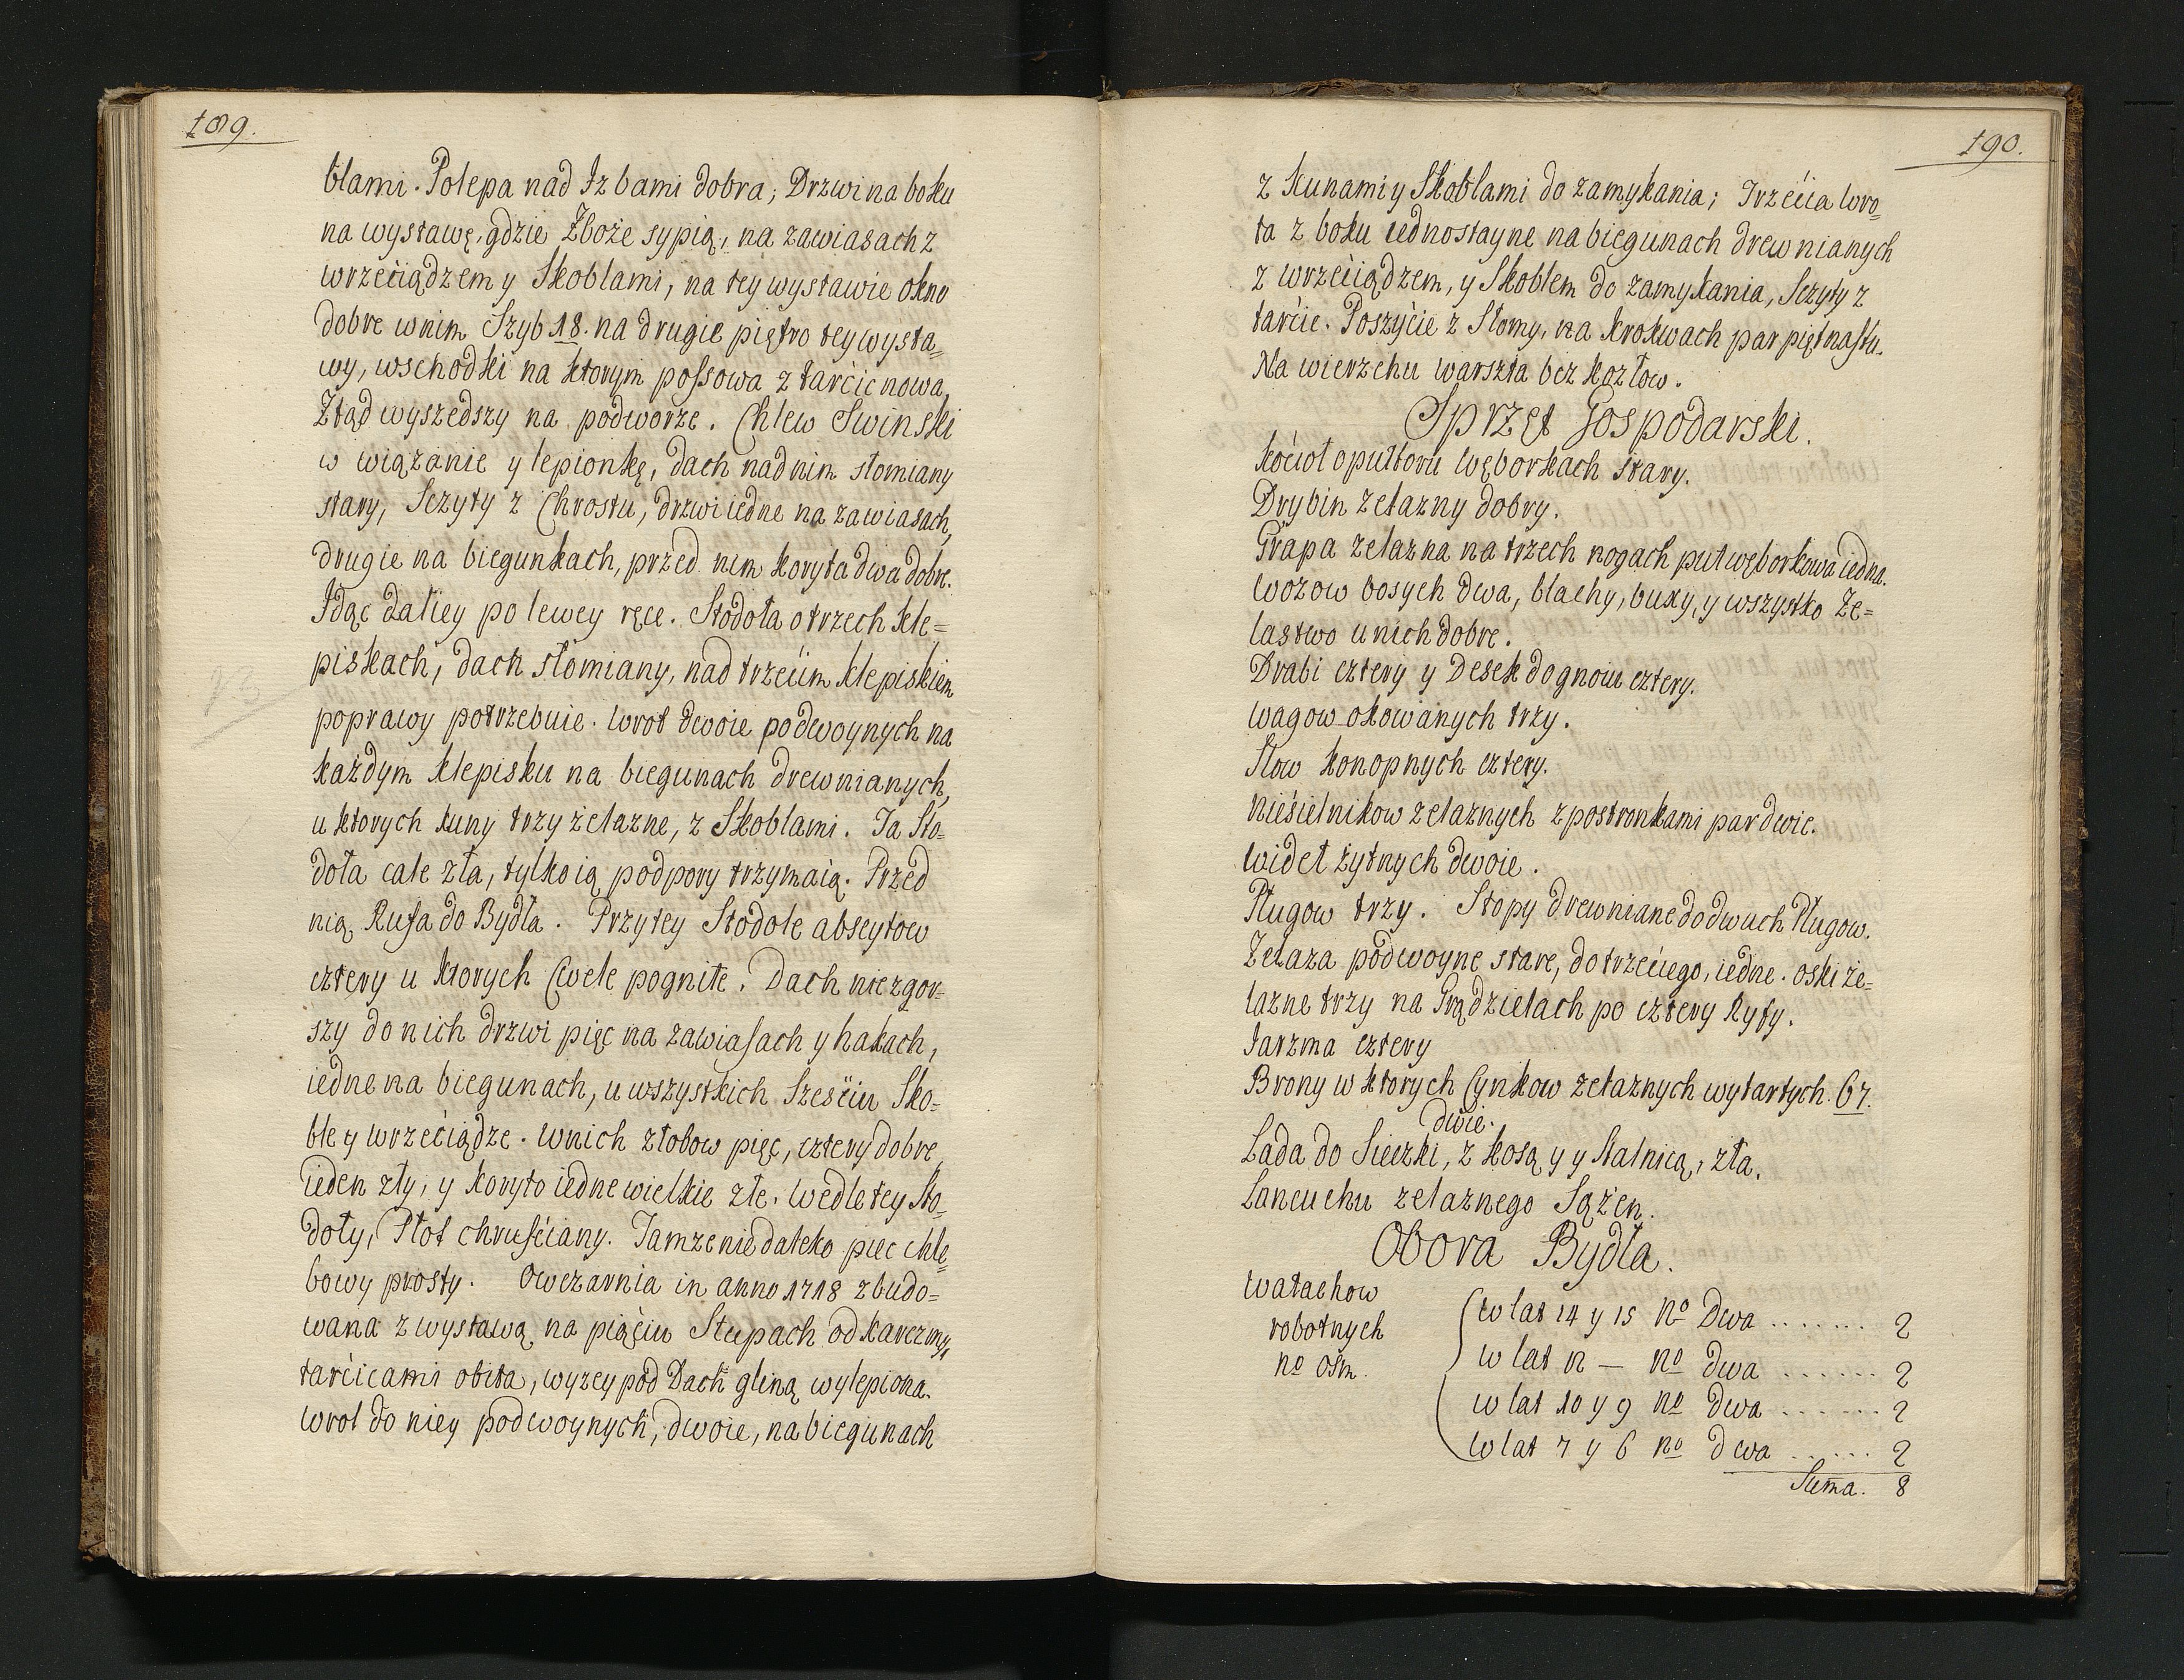 189.
błami. Polepa nad Izbami dobra; Drzwi na boku
na wystawę, gdzie Zboże sypią, na zawiasach z
wrzeciądzem y Skoblami, na tey wystawie okno
dobre w nim Szyb 18. na drugie piętro tey wysta=
wy, wschodki na ktorym possowa z tarcic nowa,
Ztąd wyszedszy na podworze. Chlew Swinski
w wiązanie y lepionkę, dach nad nim słomiany
stary, Sczyty z Chrostu, drzwi iedne na zawiasach,
drugie na biegunkach, przed nim koryta dwa dobre.
Idąc daliey po lewey ręce. Stodoła o trzech kle=
piskach, dach słomiany, nad trzecim klepiskiem
poprawy potrzebuie. Wrot dwoie podwoynych na
każdym klepisku na biegunach drewnianych,
u ktorych kuny trzy żelazne, z Skoblami. Ta Sto=
doła cale zła, tylko ią podpory trzymaią. Przed
nią Rufa do Bydła. Przy tey Stodole abseytow
cztery u ktorych Cwele pogniłe. Dach niezgor=
szy do nich drzwi pięc na zawiasach y hakach,
iedne na biegunach, u wszystkich Szesciu Sko=
ble y wrzeciądze. W nich złobow pięc, cztery dobre
ieden zły, y koryto iedne wielkie złe. Wedle tey Sto=
doły, Płot chruściany. Tamze niedaleko piec chle=
bowy prosty. Owczarnia in anno 1718 zbudo=
wana z wystawą na piąciu Słupach od karczmy,
tarcicami obita, wyzey pod Dach gliną wylepiona.
Wrot do niey podwoynych, dwoie, na biegunach
190.
z Kunami y Skoblami do zamykania; Trzecia Wro=
ta z boku iednostayne na biegunach drewnianych
z wrzeciądzem, y Skoblem do zamykania, Sczyty z
tarcic. Poszycie z Słomy, na krokwach par piętnastu.
Na wierzchu warszta bez kozłow.
Sprzęt Gospodarski.
Kocioł o pułtoru Węborkach stary.
Drybin zelazny dobry.
Grapa zelazna na trzech nogach puł węborkowa iedna.
Wozow bosych dwa, blachy, buxy, y wszystko Ze=
lastwo u nich dobre.
Drabi cztery y Desek do gnoiu cztery.
Wagow okowanych trzy.
Slow konopnych cztery.
Nieśielnikow zelaznych z postronkami par dwie.
Wideł żytnych dwoie.
Pługow trzy. Stopy drewniane do dwuch Pługow.
Zelaza podwoyne stare, do trzeciego, iedne. Oski że=
lazne trzy na Grądzielach po cztery Ryfy.
Jarzma cztery
Brony w ktorych Cynkow zelaznych wytartych. 67.
dwie.
Lada do Sieczki, z kosą y y Stalnicą, zła.
Lancuchu zelaznego Sążen.
Obora Bydła.
Wałachow
robotnych
no osm.
w lat 14 y 15 No Dwa ....... 2
w lat 12 — No dwa ...... 2
w lat 10 y 9 No Dwa ...... 2
w lat 7 y 6 No Dwa ...... 2
Suma. 8